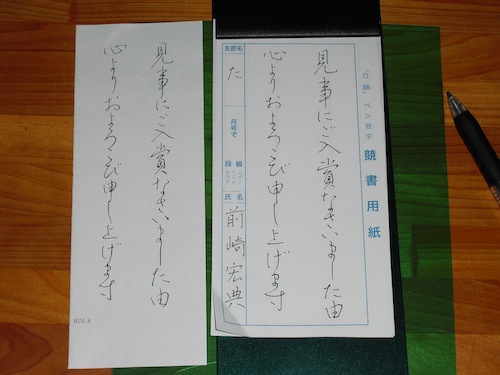 見事にご入賞なさいました由
心よりおよろこび申し上げます
「白鷗」ペン習字 競書用紙
見事にご入賞なさいました由
心よりおよろこび申し上げます
支部名
た
月号で
段 級
氏名
前崎宏典